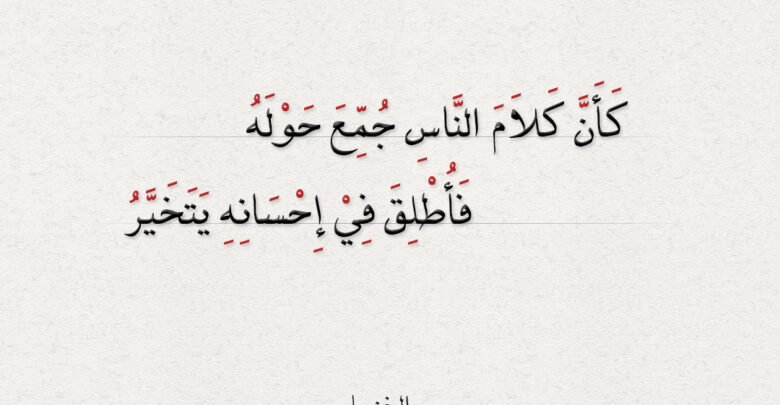 كَأَنَّ كَلاَمَ النَّاسِ جُمِّعَ حَوْلَهُ
فَأُطْلِقَ فِيْ إِحْسَانِهِ يَتَخَيَّرُ